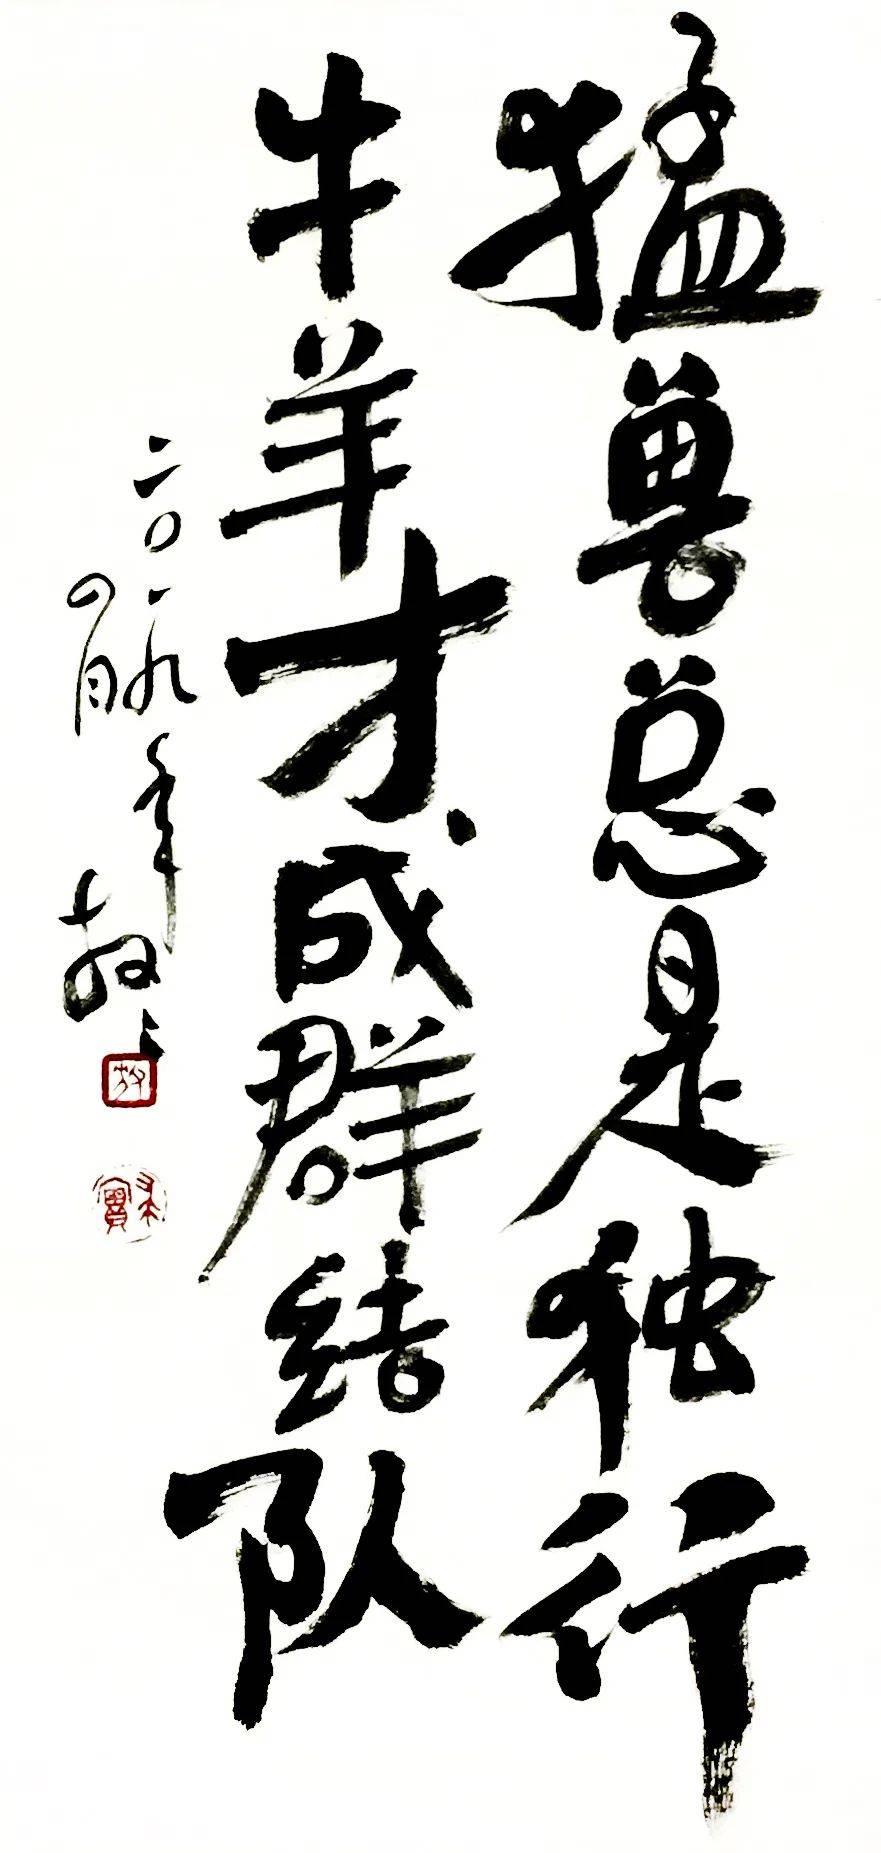 猛兽总是独行
牛羊才成群结队
二〇一九年
四月